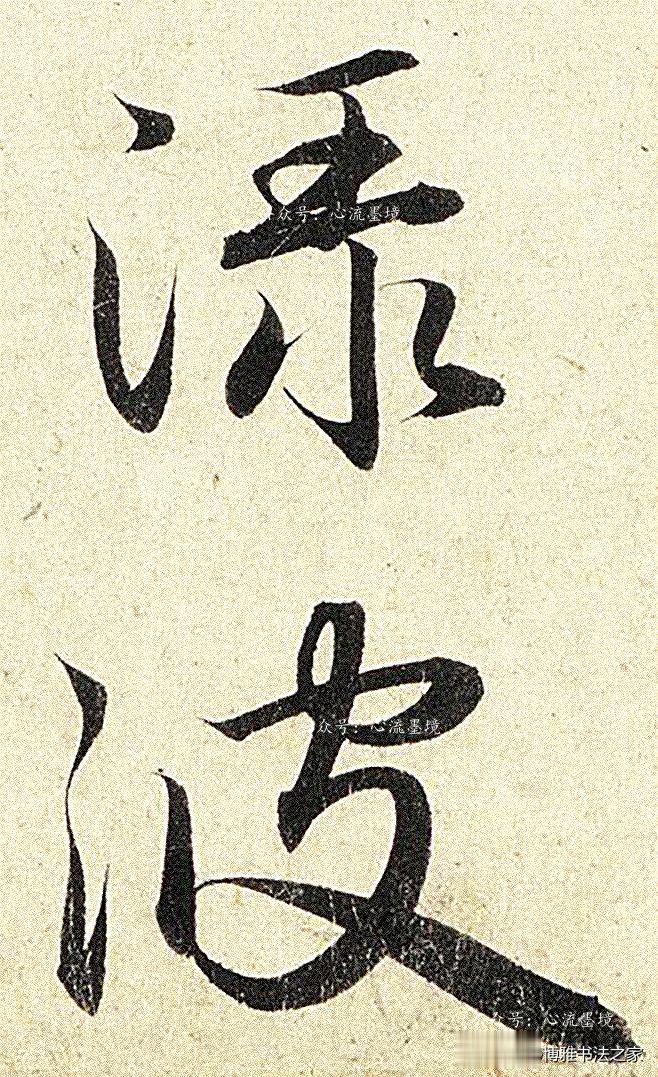 渌
波
众号：心流墨境
众号：心流墨境
众号：心流墨境
博雅书法之家